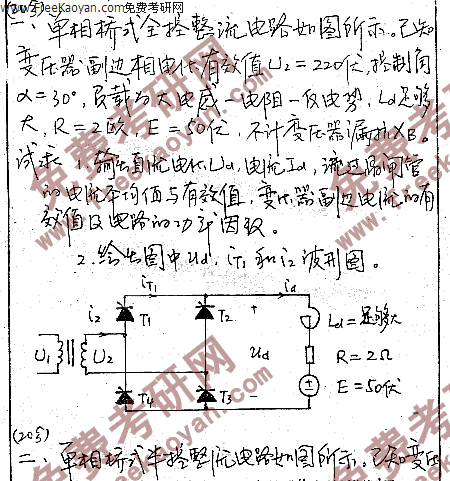 www.FreeKaoyan.com免费考研网
(20分)
一、单相桥式全控整流电路如图所示。已知
变压器副边相电压有效值U₂=220伏,控制角
α=30°,负载为大电感-电阻-反电势,Ld足够
大,R=2欧,E=50伏,不计变压器漏抗XB。
试求1.输出直流电压Ud,电流Id,流过晶闸管
的电流平均值与有效值,变压器副边电流的有
效值及电路的功率因数。
2.绘出图中ud,iT1和i2波形图。
iT1 id
i2 T1 T2 + Ld=足够大
U1 U2 Ud R=2Ω
T4 T3 - E=50伏
(20分)
二、单相桥式半控整流电路如图所示。已知变压
免费考研网
www.freekaoyan.com